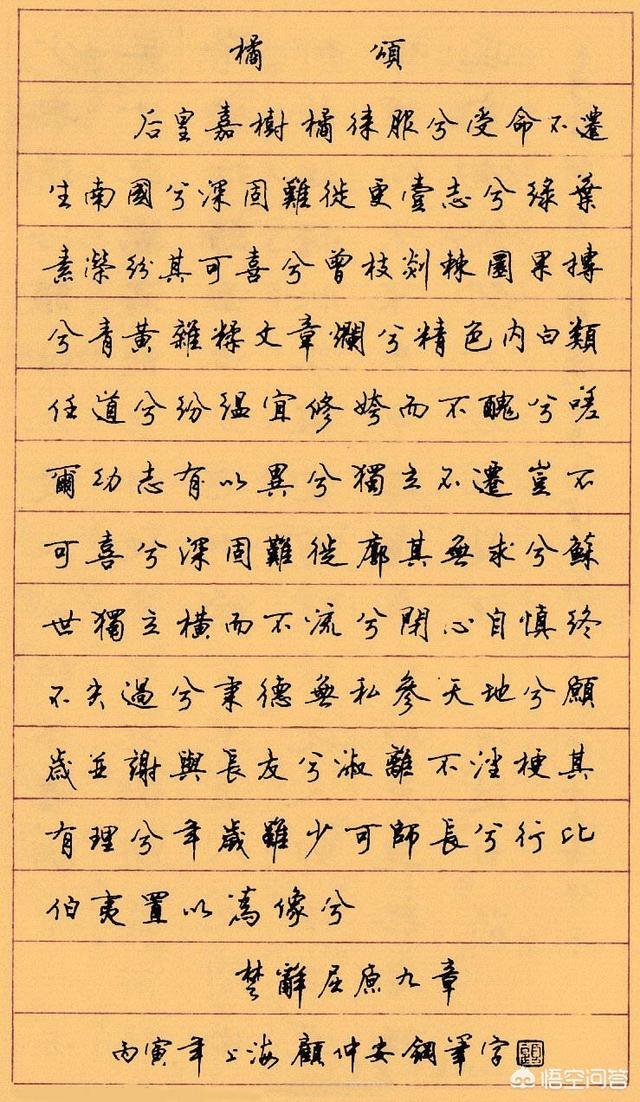 橘頌
后皇嘉樹橘徠服兮受命不遷
生南國兮深固難徙更壹志兮綠葉
素榮紛其可喜兮曾枝剡棘圓果摶
兮青黃雜糅文章爛兮精色內白類
任道兮紛緼宜修姱而不醜兮嗟
爾幼志有以異兮獨立不遷豈不
可喜兮深固難徙廓其無求兮蘇
世獨立橫而不流兮閉心自慎終
不失過兮秉德無私參天地兮願
歲並謝與長友兮淑離不淫梗其
有理兮年歲雖少可師長兮行比
伯夷置以為像兮
楚辭屈原九章
丙寅年上海顧仲安鋼筆字
悟空问答